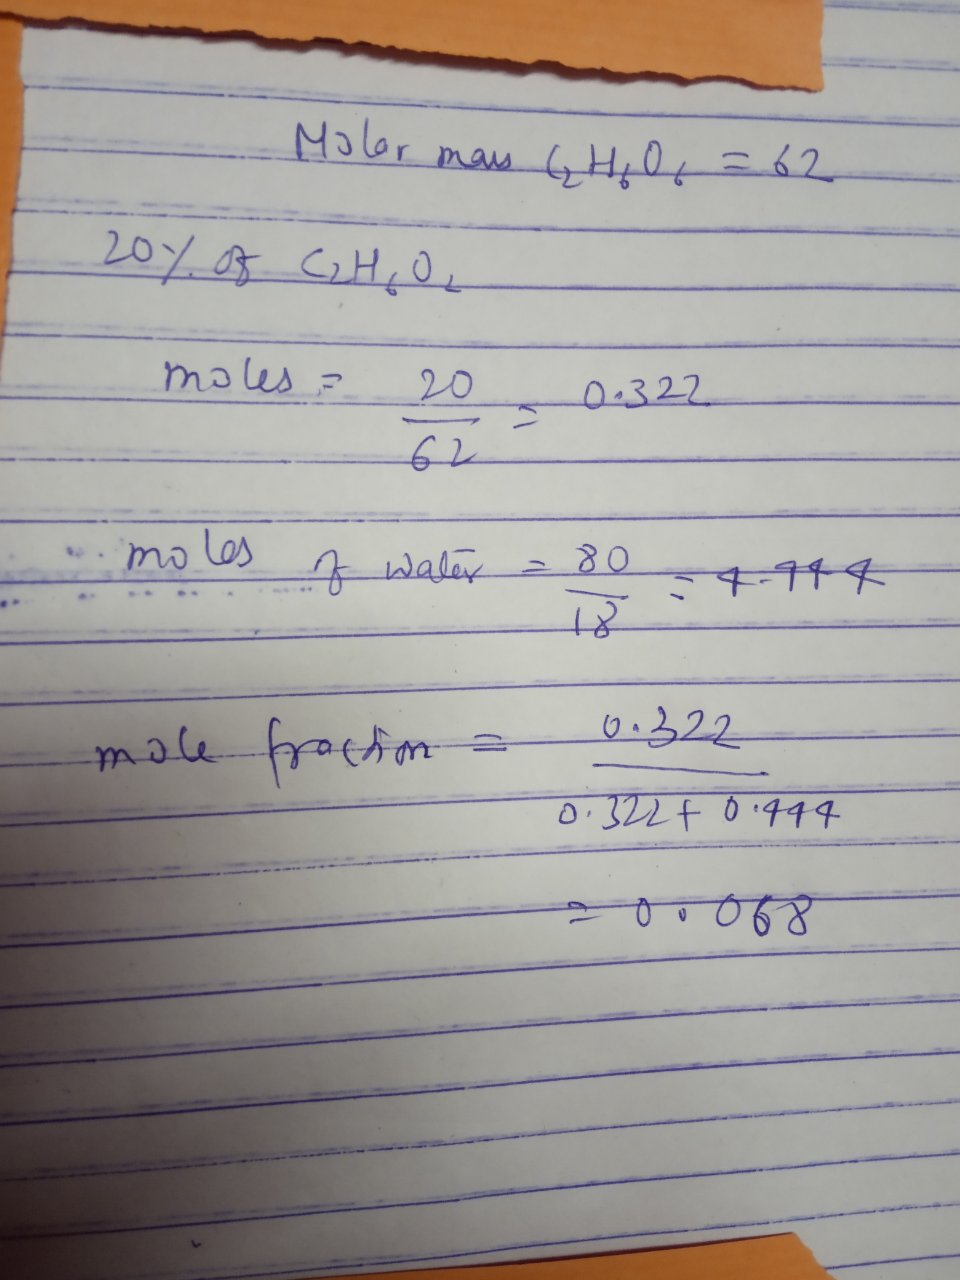 Molar mass C₂H₆O₆ = 62
20% of C₂H₆O₂
moles = 20/62 = 0.322
moles of water = 80/18 = 4.444
mole fraction = 0.322/0.322 + 0.444
= 0.068